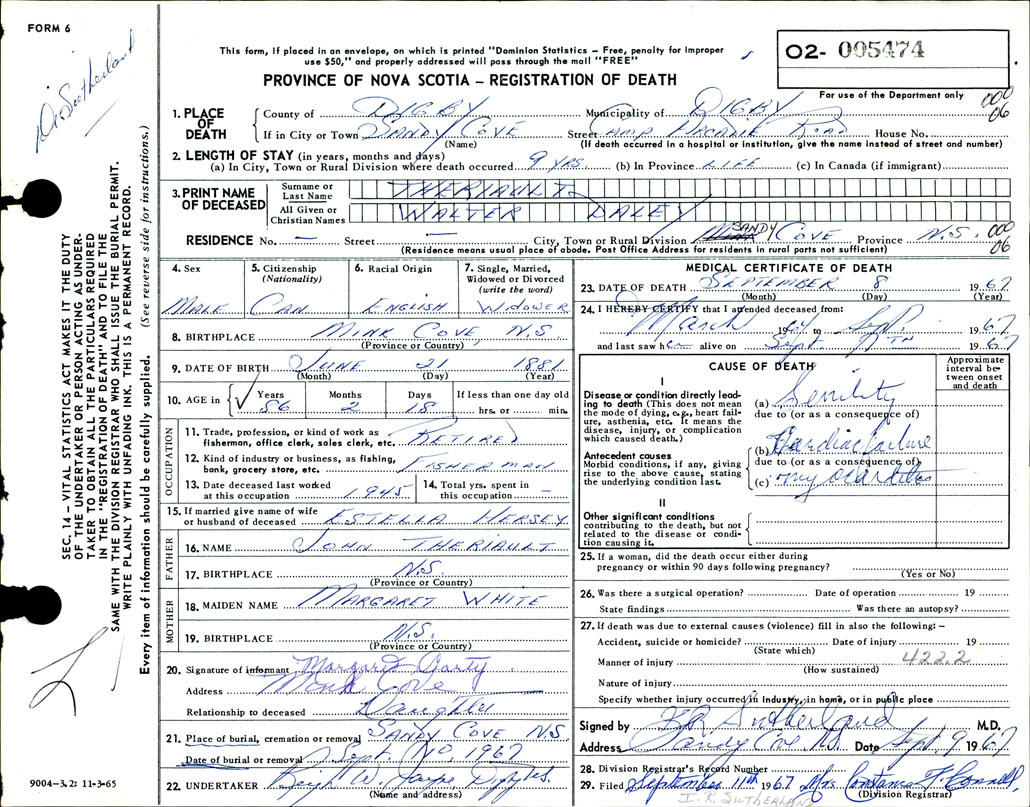 FORM 6
Dr. Sutherland
This form, if placed in an envelope, on which is printed "Dominion Statistics – Free, penalty for improper
use $50," and properly addressed will pass through the mail "FREE"
PROVINCE OF NOVA SCOTIA – REGISTRATION OF DEATH
02- 005474
For use of the Department only
000
06
1. PLACE OF DEATH
County of DIGBY Municipality of DIGBY
If in City or Town SANDY COVE Street CAMP ARCADIE ROAD House No.
(Name) (If death occurred in a hospital or institution, give the name instead of street and number)
2. LENGTH OF STAY (in years, months and days)
(a) In City, Town or Rural Division where death occurred 9 YRS. (b) In Province LIFE (c) In Canada (if immigrant)
3. PRINT NAME OF DECEASED
Surname or Last Name THERIAULT
All Given or Christian Names WALTER DALEY
RESIDENCE No. — Street — City, Town or Rural Division SANDY COVE Province N.S.
000
06
(Residence means usual place of abode. Post Office Address for residents in rural parts not sufficient)
4. Sex
MALE
5. Citizenship (Nationality)
CAN
6. Racial Origin
ENGLISH
7. Single, Married, Widowed or Divorced (write the word)
WIDOWER
8. BIRTHPLACE MINK COVE N.S.
(Province or Country)
9. DATE OF BIRTH JUNE 21 1881
(Month) (Day) (Year)
10. AGE in Years Months Days If less than one day old
86 2 18 hrs. or min.
OCCUPATION
11. Trade, profession, or kind of work as
fisherman, office clerk, sales clerk, etc. RETIRED
12. Kind of industry or business, as fishing,
bank, grocery store, etc. FISHERMAN
13. Date deceased last worked
at this occupation 1945
14. Total yrs. spent in
this occupation –
15. If married give name of wife
or husband of deceased ESTELLA HERSEY
FATHER
16. NAME JOHN THERIAULT
17. BIRTHPLACE N.S.
(Province or Country)
MOTHER
18. MAIDEN NAME MARGARET WHITE
19. BIRTHPLACE N.S.
(Province or Country)
20. Signature of informant Margaret Carty
Address Mink Cove
Relationship to deceased Daughter
21. Place of burial, cremation or removal SANDY COVE N.S.
Date of burial or removal Sept. 10, 1967
22. UNDERTAKER W.
(Name and address)
MEDICAL CERTIFICATE OF DEATH
23. DATE OF DEATH SEPTEMBER 8 1967
(Month) (Day) (Year)
24. I HEREBY CERTIFY that I attended deceased from:
March to Sept. 1967
and last saw h alive on Sept 7th 1967
CAUSE OF DEATH
Approximate interval between onset and death
I
Disease or condition directly leading to death (This does not mean the mode of dying, e.g., heart failure, asthenia, etc. It means the disease, injury, or complication which caused death.)
(a) Senility
due to (or as a consequence of)
Antecedent causes
Morbid conditions, if any, giving rise to the above cause, stating the underlying condition last.
(b) Cardiac failure
due to (or as a consequence of)
(c) myocarditis
II
Other significant conditions
contributing to the death, but not related to the disease or condition causing it.
25. If a woman, did the death occur either during
pregnancy or within 90 days following pregnancy?
(Yes or No)
26. Was there a surgical operation? Date of operation 19
State findings Was there an autopsy?
27. If death was due to external causes (violence) fill in also the following: –
Accident, suicide or homicide? Date of injury 19
(State which)
Manner of injury 422.2
(How sustained)
Nature of injury
Specify whether injury occurred in industry, in home, or in public place
Signed by Sutherland M.D.
Address Sandy Cove N.S. Date Sept 9 1967
28. Division Registrar's Record Number
29. Filed September 11th 1967 Mrs. Constance F. Connell
(Division Registrar)
I. R. SUTHERLAND
SEC. 14 – VITAL STATISTICS ACT MAKES IT THE DUTY
OF THE UNDERTAKER OR PERSON ACTING AS UNDER-
TAKER TO OBTAIN ALL THE PARTICULARS REQUIRED
IN THE "REGISTRATION OF DEATH" AND TO FILE THE
SAME WITH THE DIVISION REGISTRAR WHO SHALL ISSUE THE BURIAL PERMIT.
WRITE PLAINLY WITH UNFADING INK. THIS IS A PERMANENT RECORD.
Every item of information should be carefully supplied. (See reverse side for instructions.)
9004–3.2: 11-3-65